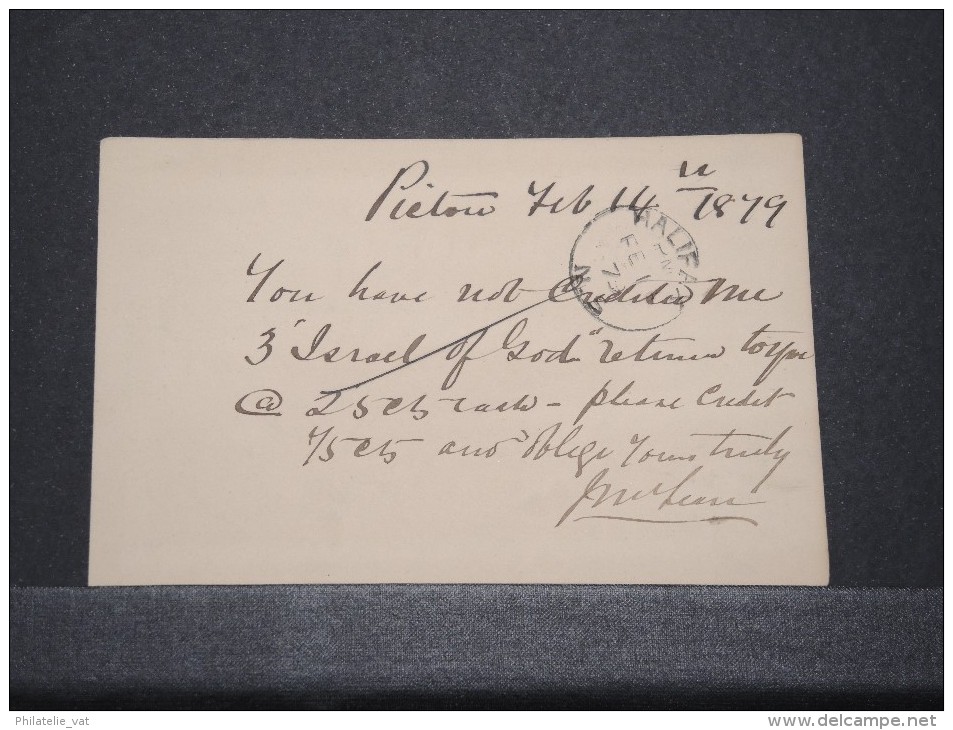 Pictou Feb 14th 1879
HALIFAX
PM
FE 1
79
CAN
You have not Credited Me
3 "Israel of God" returned to you
@ 25cts each - please Credit
75cts and oblige Yours truly
J McLean
Philatelie_vat
www.delcampe.net